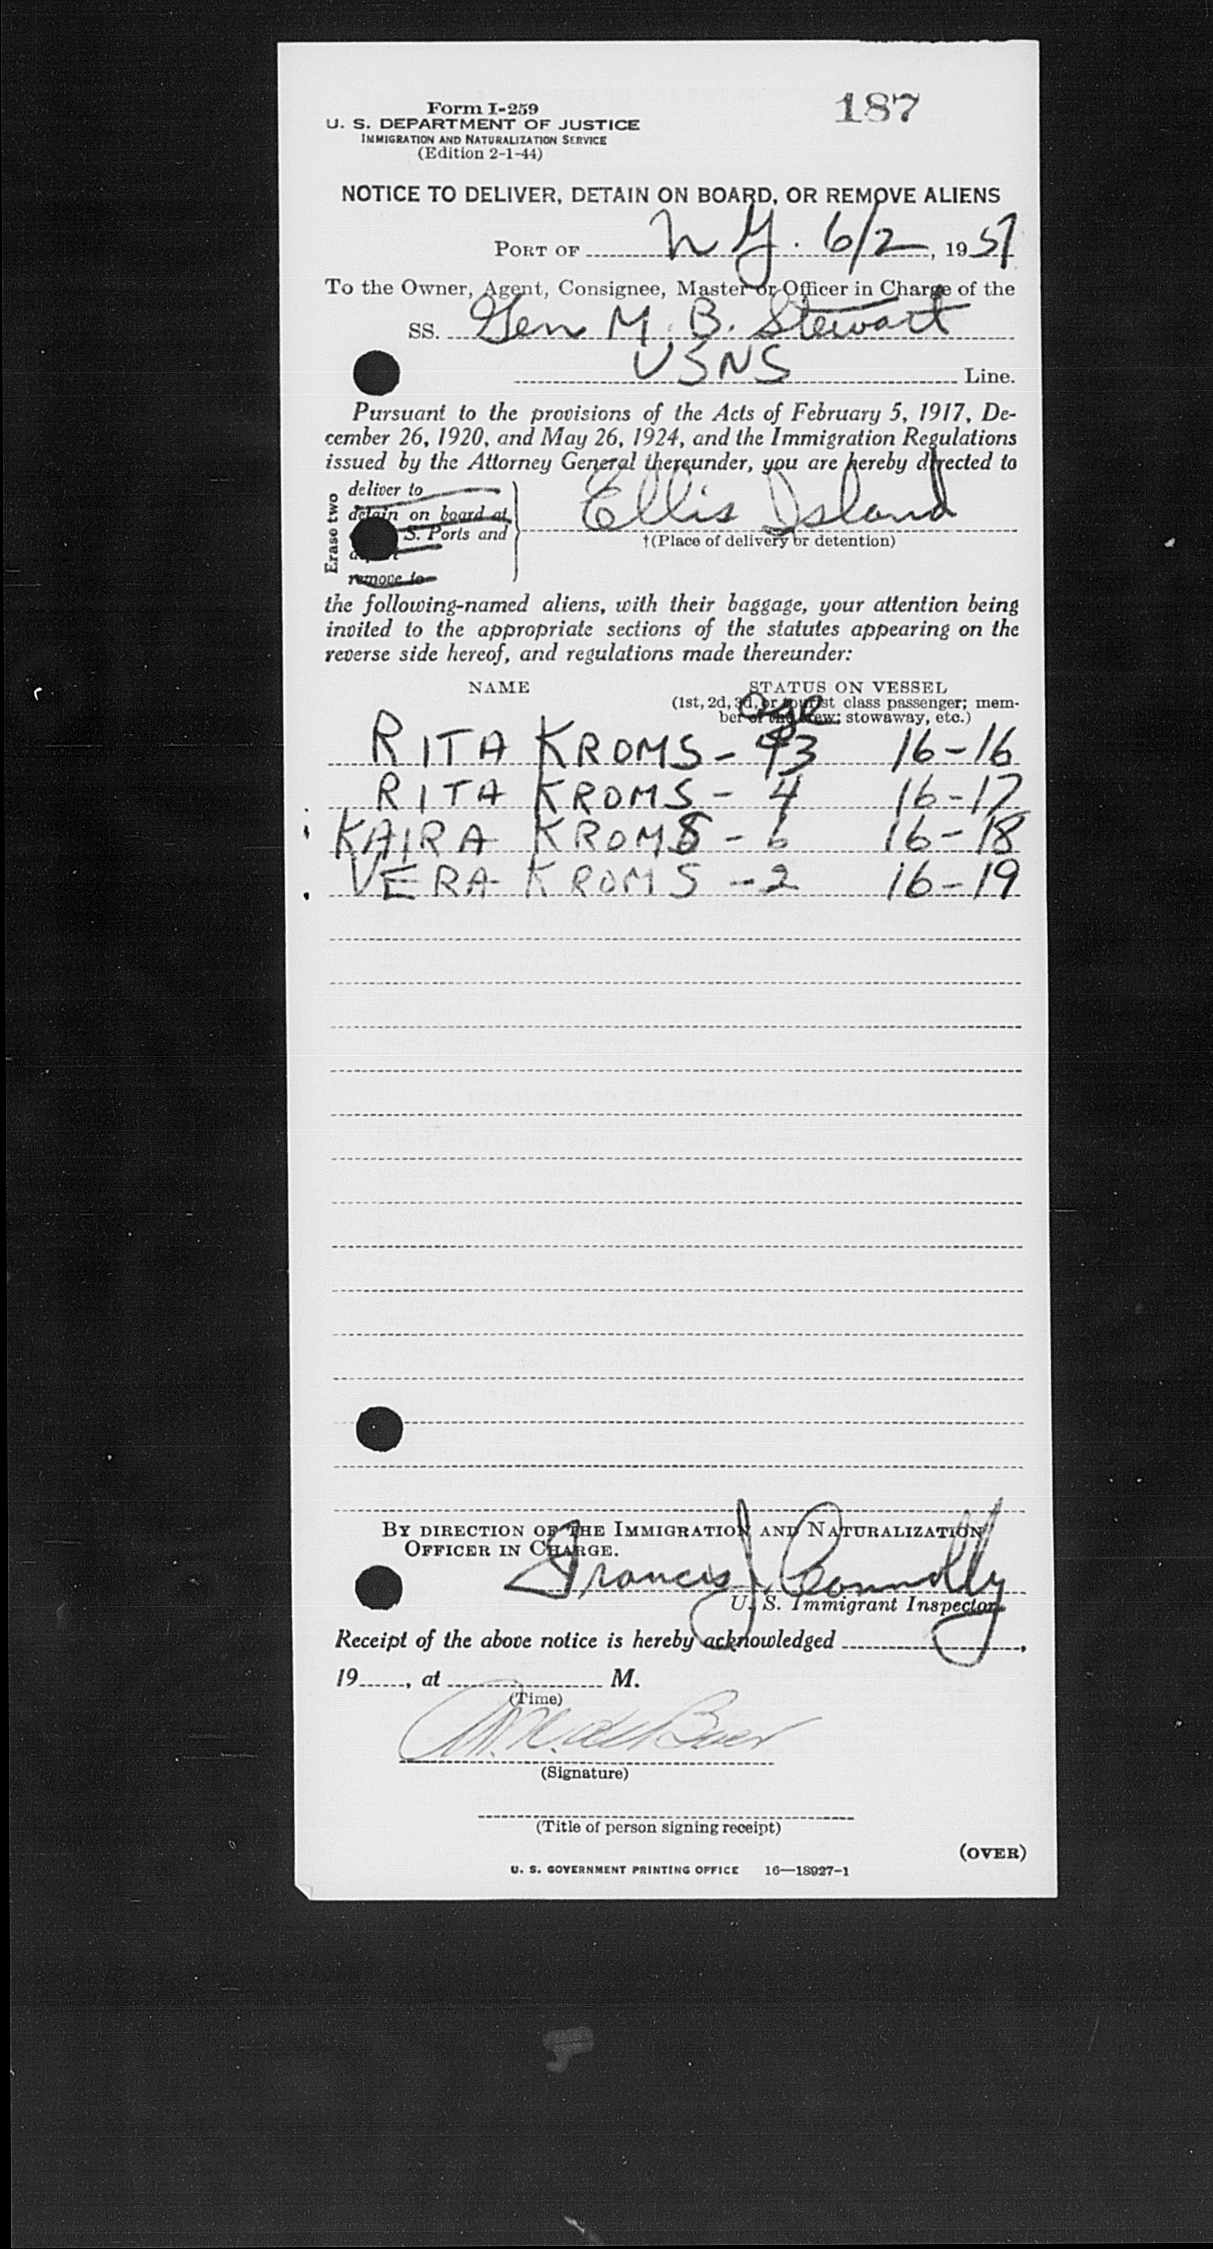 Form I-259
187
U. S. DEPARTMENT OF JUSTICE
IMMIGRATION AND NATURALIZATION SERVICE
(Edition 2-1-44)
NOTICE TO DELIVER, DETAIN ON BOARD, OR REMOVE ALIENS
PORT OF N Y. 6/2, 1951
To the Owner, Agent, Consignee, Master or Officer in Charge of the
SS. Gen M. B. Stewart
USNS Line.
Pursuant to the provisions of the Acts of February 5, 1917, De-
cember 26, 1920, and May 26, 1924, and the Immigration Regulations
issued by the Attorney General thereunder, you are hereby directed to
Erase two
deliver to
detain on board at
S. Ports and
remove to
Ellis Island
†(Place of delivery or detention)
the following-named aliens, with their baggage, your attention being
invited to the appropriate sections of the statutes appearing on the
reverse side hereof, and regulations made thereunder:
NAME STATUS ON VESSEL
(1st, 2d, 3d, or tourist class passenger; mem-
ber of the crew; stowaway, etc.)
age
RITA KROMS - 43 16-16
RITA KROMS - 4 16-17
KAIRA KROMS - 6 16-18
VERA KROMS - 2 16-19
BY DIRECTION OF THE IMMIGRATION AND NATURALIZATION
OFFICER IN CHARGE.
Francis J. Connolly
U. S. Immigrant Inspector.
Receipt of the above notice is hereby acknowledged ,
19 , at M.
(Time)
(Signature)
(Title of person signing receipt)
(OVER)
U. S. GOVERNMENT PRINTING OFFICE 16—18927-1